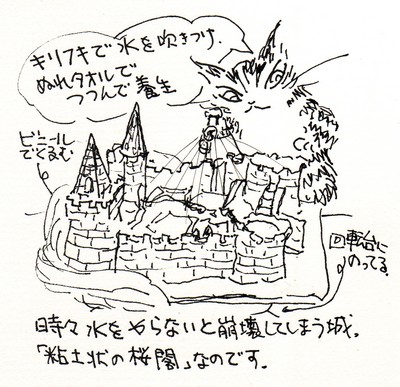 キリフキで水を吹きつけ、
ぬれタオルで
つつんで養生
ビニール
でくるむ
回転台に
のってる。
時々水をやらないと崩壊してしまう城。
「粘土状の桜閣」なのです。